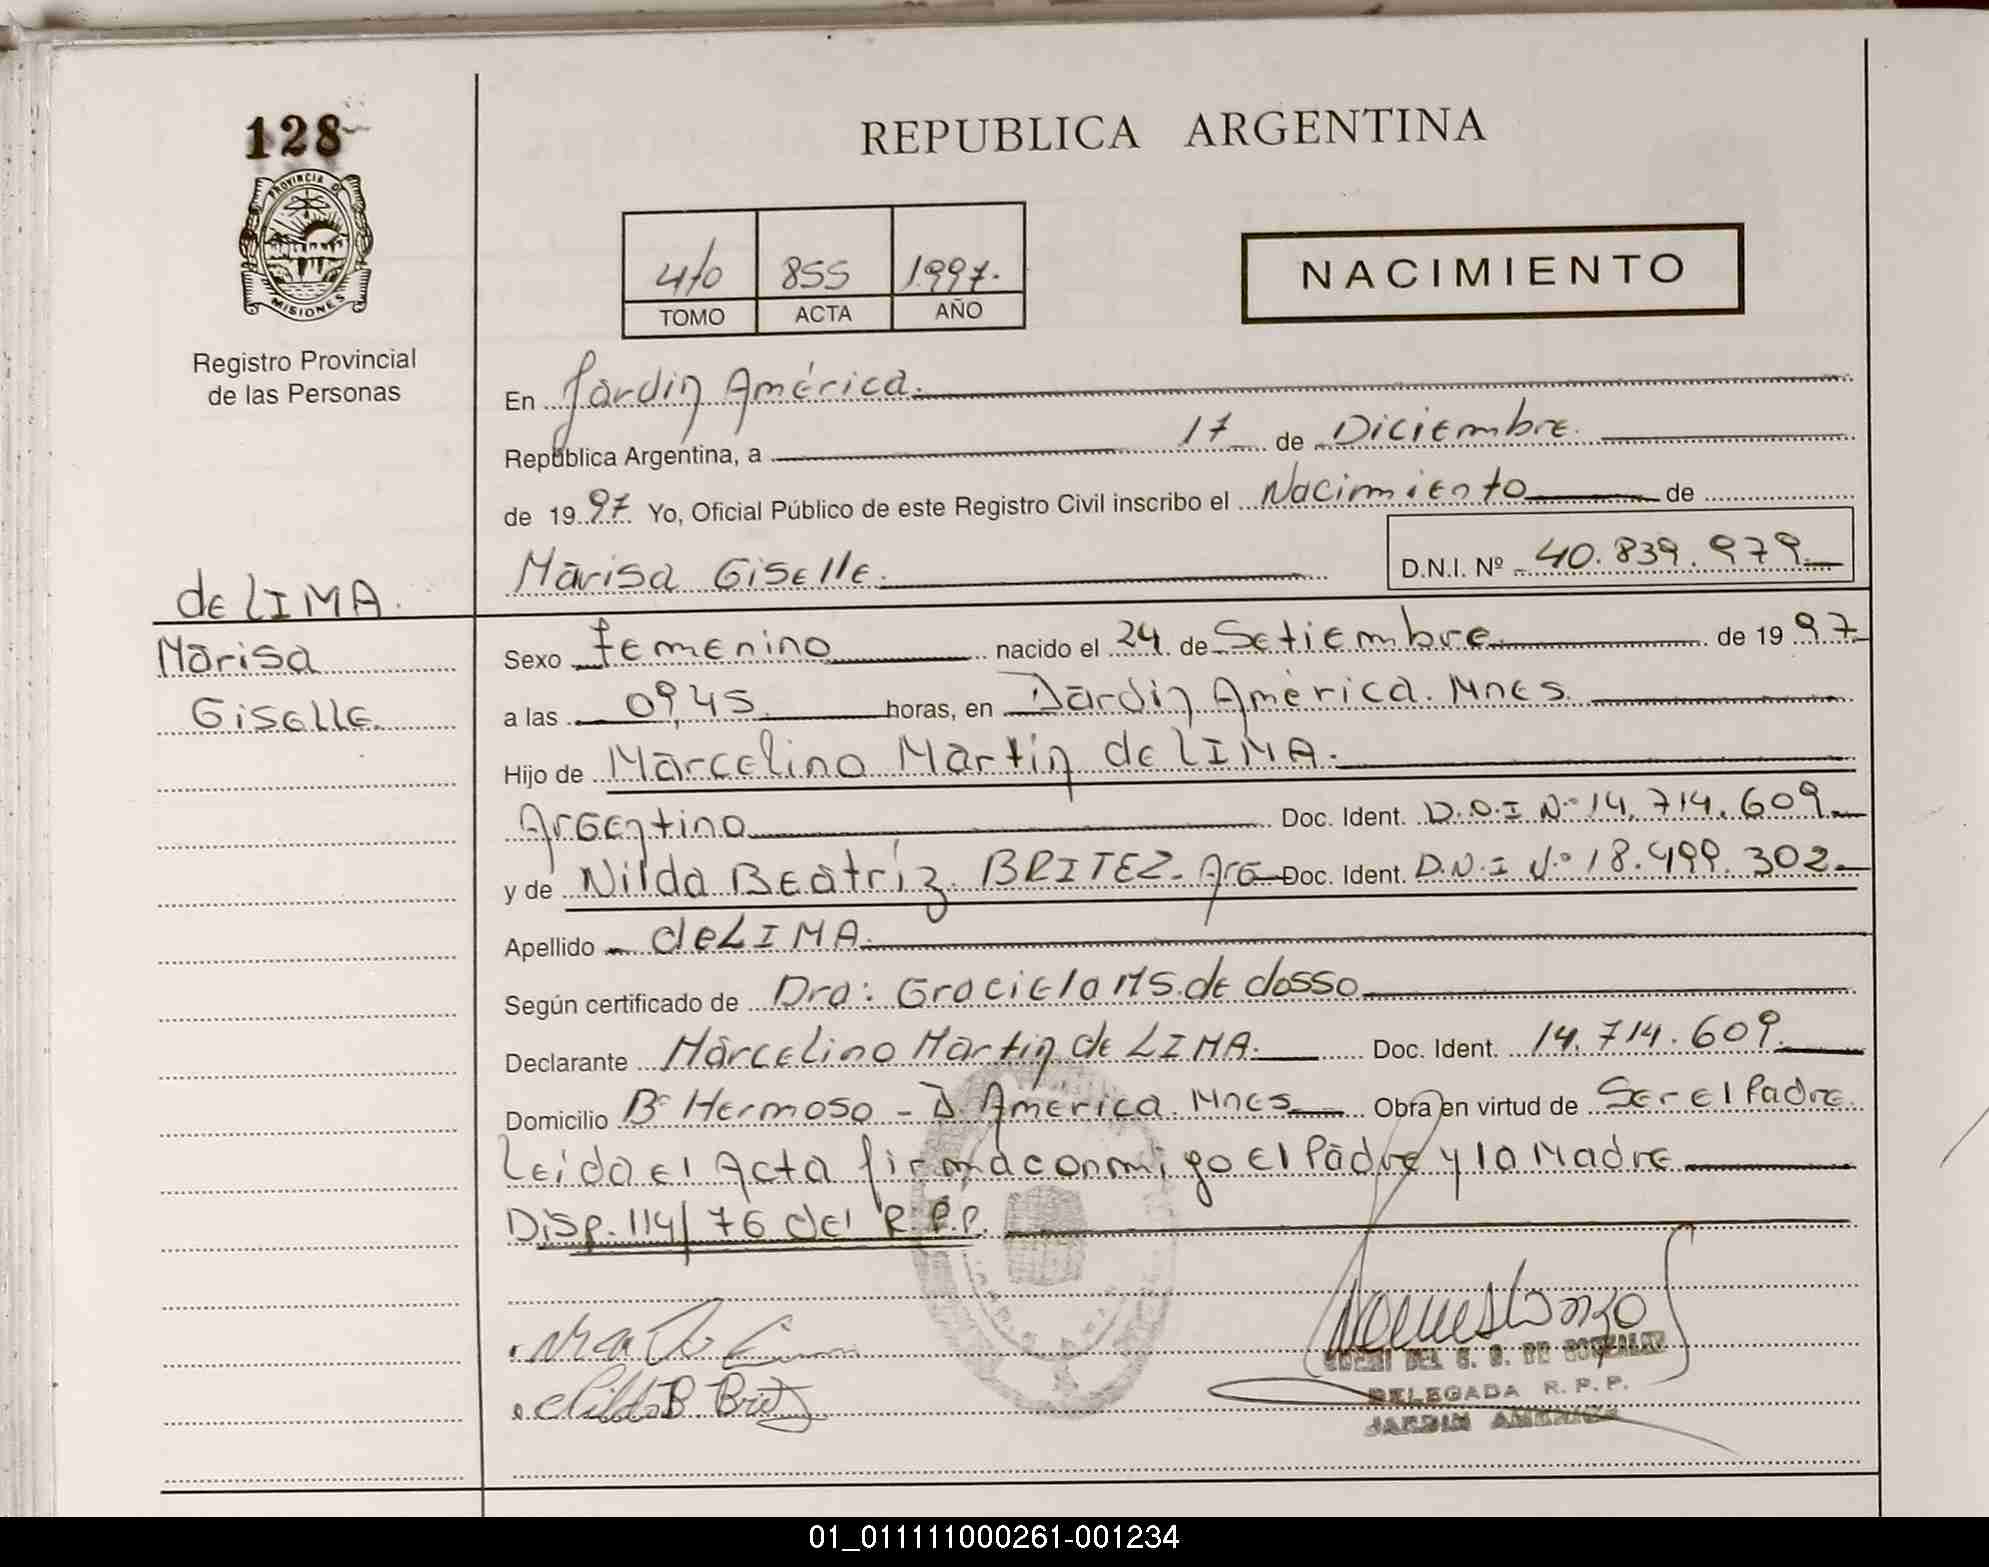 128
PROVINCIA DE
MISIONES
Registro Provincial
de las Personas
de LIMA.
Marisa
Giselle.
REPUBLICA ARGENTINA
4/0 855 1997.
TOMO ACTA AÑO
NACIMIENTO
En Jardin América.
República Argentina, a 17 de Diciembre.
de 1997 Yo, Oficial Público de este Registro Civil inscribo el Nacimiento de
Marisa Giselle. D.N.I. Nº 40.839.979.
Sexo femenino nacido el 24 de Setiembre de 1997
a las 09,45 horas, en Jardin América. Mnes.
Hijo de Marcelino Martin de LIMA.
Argentino Doc. Ident. D.N.I Nº 14.714.609.
y de Nilda Beatriz. BRITEZ. Arg Doc. Ident. D.N.I Nº 18.499.302.
Apellido de LIMA.
Según certificado de Dra: Graciela MS. de dosso
Declarante Marcelino Martin de LIMA. Doc. Ident. 14.714.609.
Domicilio Bº Hermoso - J. América. Mnes. Obra en virtud de Ser el Padre.
Leida el Acta firma conmigo el Padre y la Madre
Disp. 114/76 del R.P.P.
Nilda B. Brit
DEL C. G. DE GONZALEZ
DELEGADA R.P.P.
JARDIN AMERICA
01_011111000261-001234